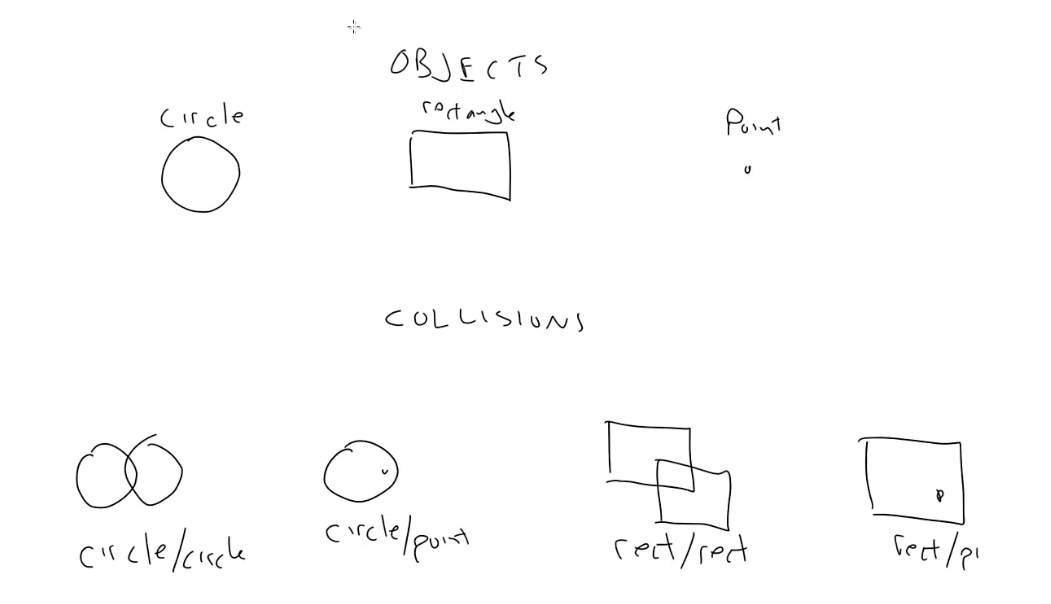 OBJECTS
circle
rectangle
Point
COLLISIONS
circle/circle
circle/point
rect/rect
rect/p